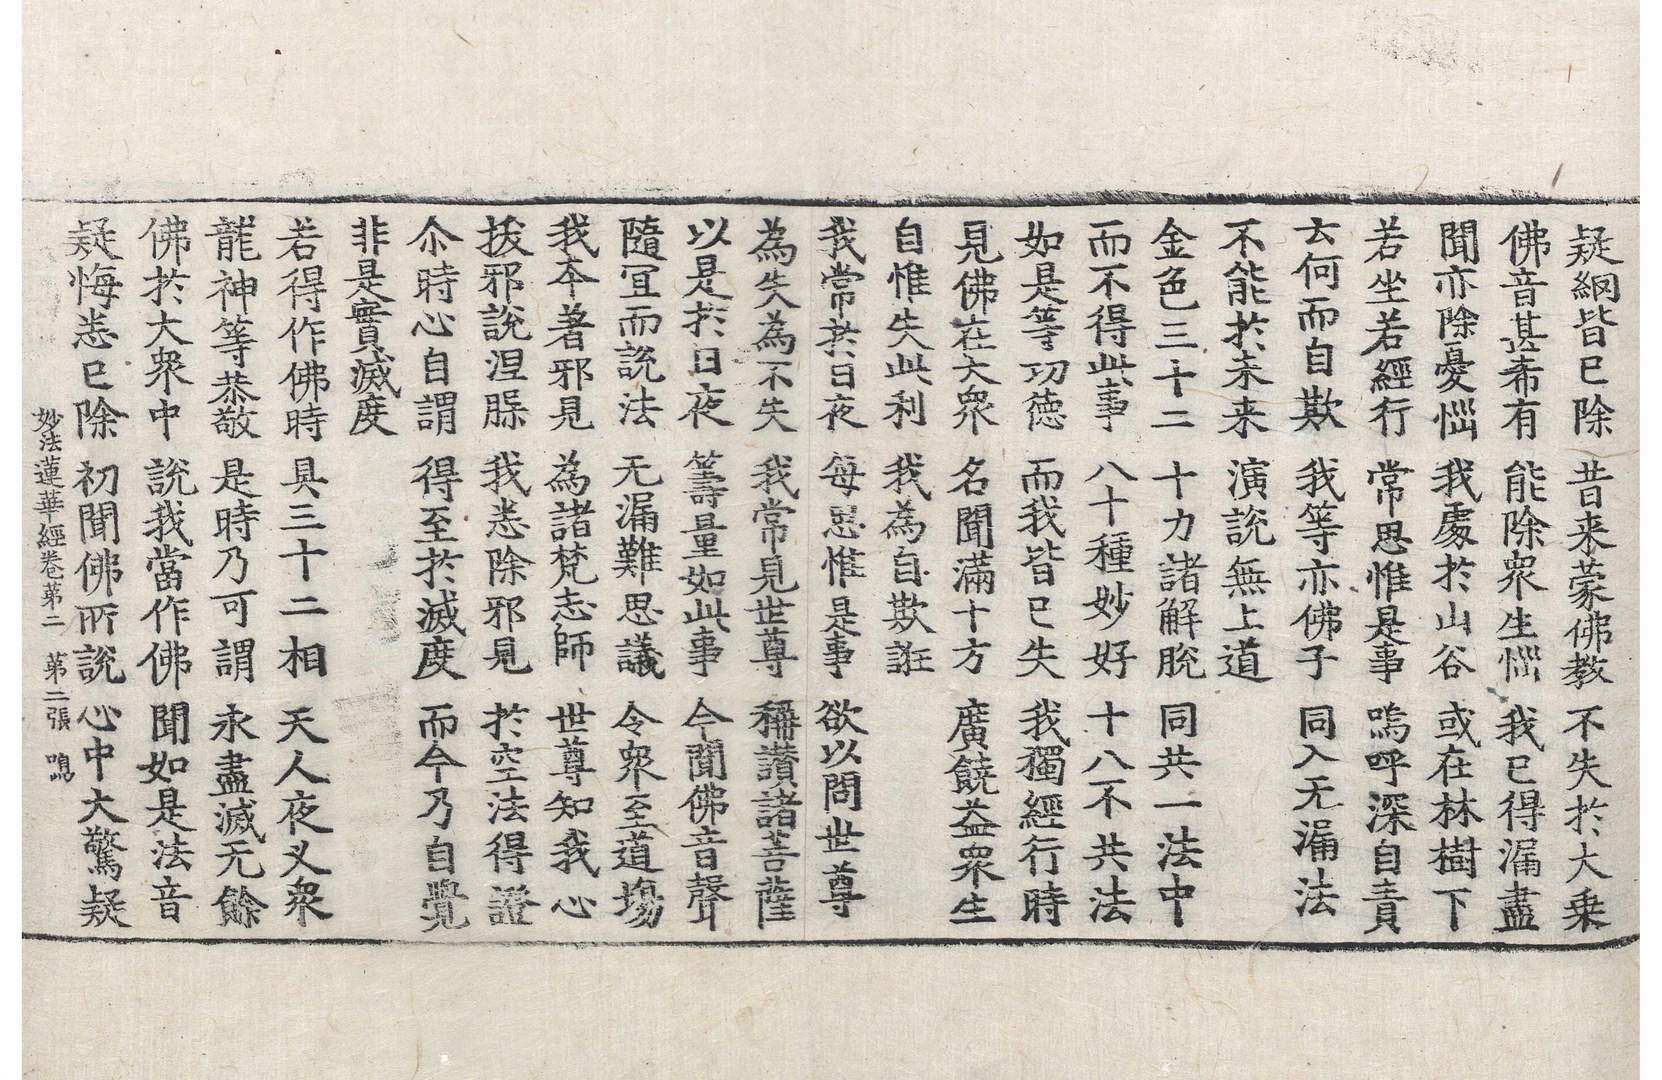 疑網皆已除 昔来蒙佛教 不失於大乗
佛音甚希有 能除衆生惱 我已得漏盡
聞亦除憂惱 我處於山谷 或在林樹下
若坐若經行 常思惟是事 嗚呼深自責
云何而自欺 我等亦佛子 同入无漏法
不能於未来 演說無上道
金色三十二 十力諸解脫 同共一法中
而不得此事 八十種妙好 十八不共法
如是等功德 而我皆已失 我獨經行時
見佛在大衆 名聞滿十方 廣饒益衆生
自惟失此利 我為自欺誑
我常於日夜 每思惟是事 欲以問世尊
為失為不失 我常見世尊 稱讃諸菩薩
以是於日夜 籌量如此事 今聞佛音聲
隨冝而說法 无漏難思議 令衆至道場
我本著邪見 為諸梵志師 世尊知我心
拔邪說涅槃 我悉除邪見 於空法得證
尒時心自謂 得至於滅度 而今乃自覺
非是實滅度
若得作佛時 具三十二相 天人夜叉衆
龍神等恭敬 是時乃可謂 永盡滅无餘
佛於大衆中 說我當作佛 聞如是法音
疑悔悉已除 初聞佛所說 心中大驚疑
妙法蓮華經卷第二 第二張 鳴